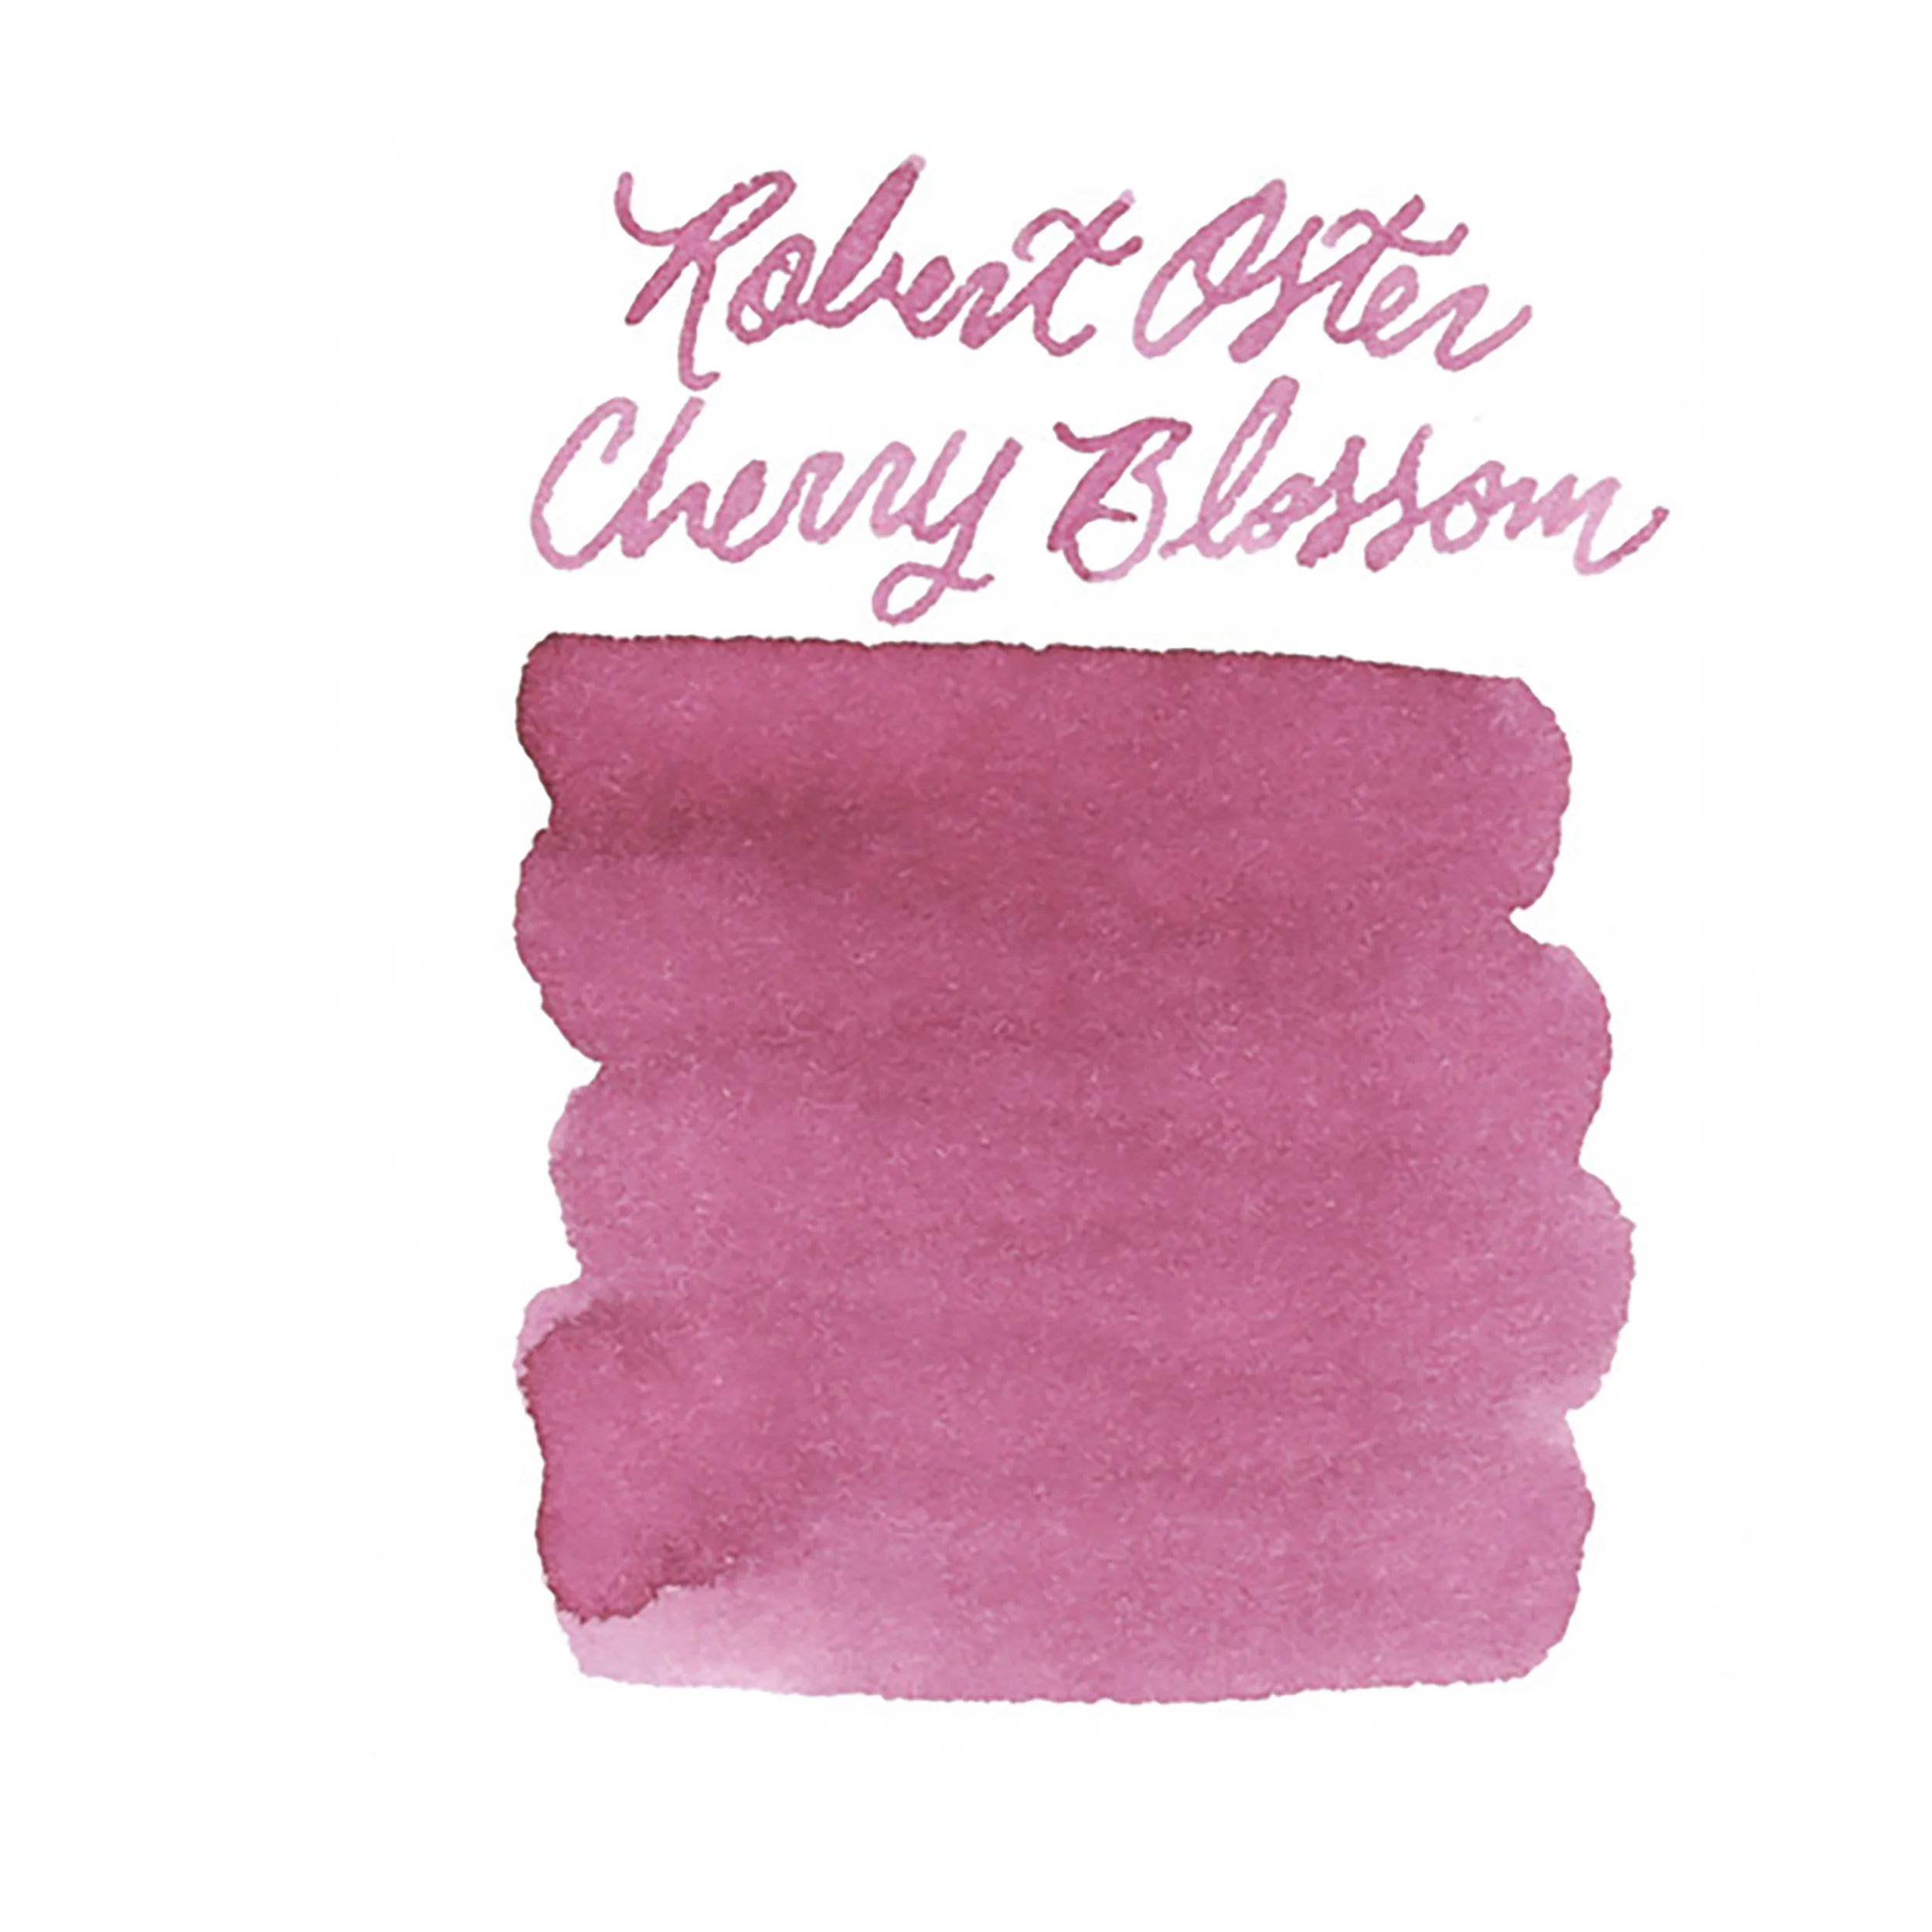 Robert Oster
Cherry Blossom